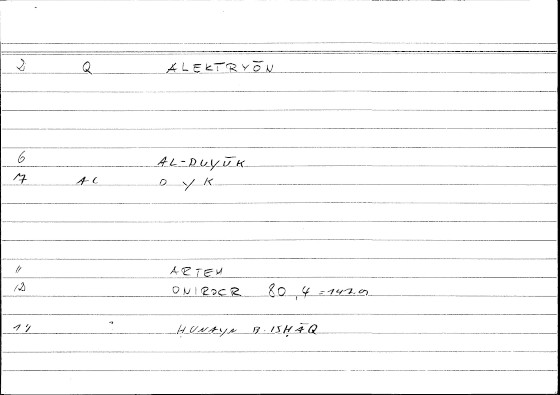 2 Q ALEKTRYŌN
6 AL-DUYŪK
7 AC D Y K
11 ARTEM
12 ONIROCR 80,4 =
14 ḤUNAYN B. ISḤĀQ